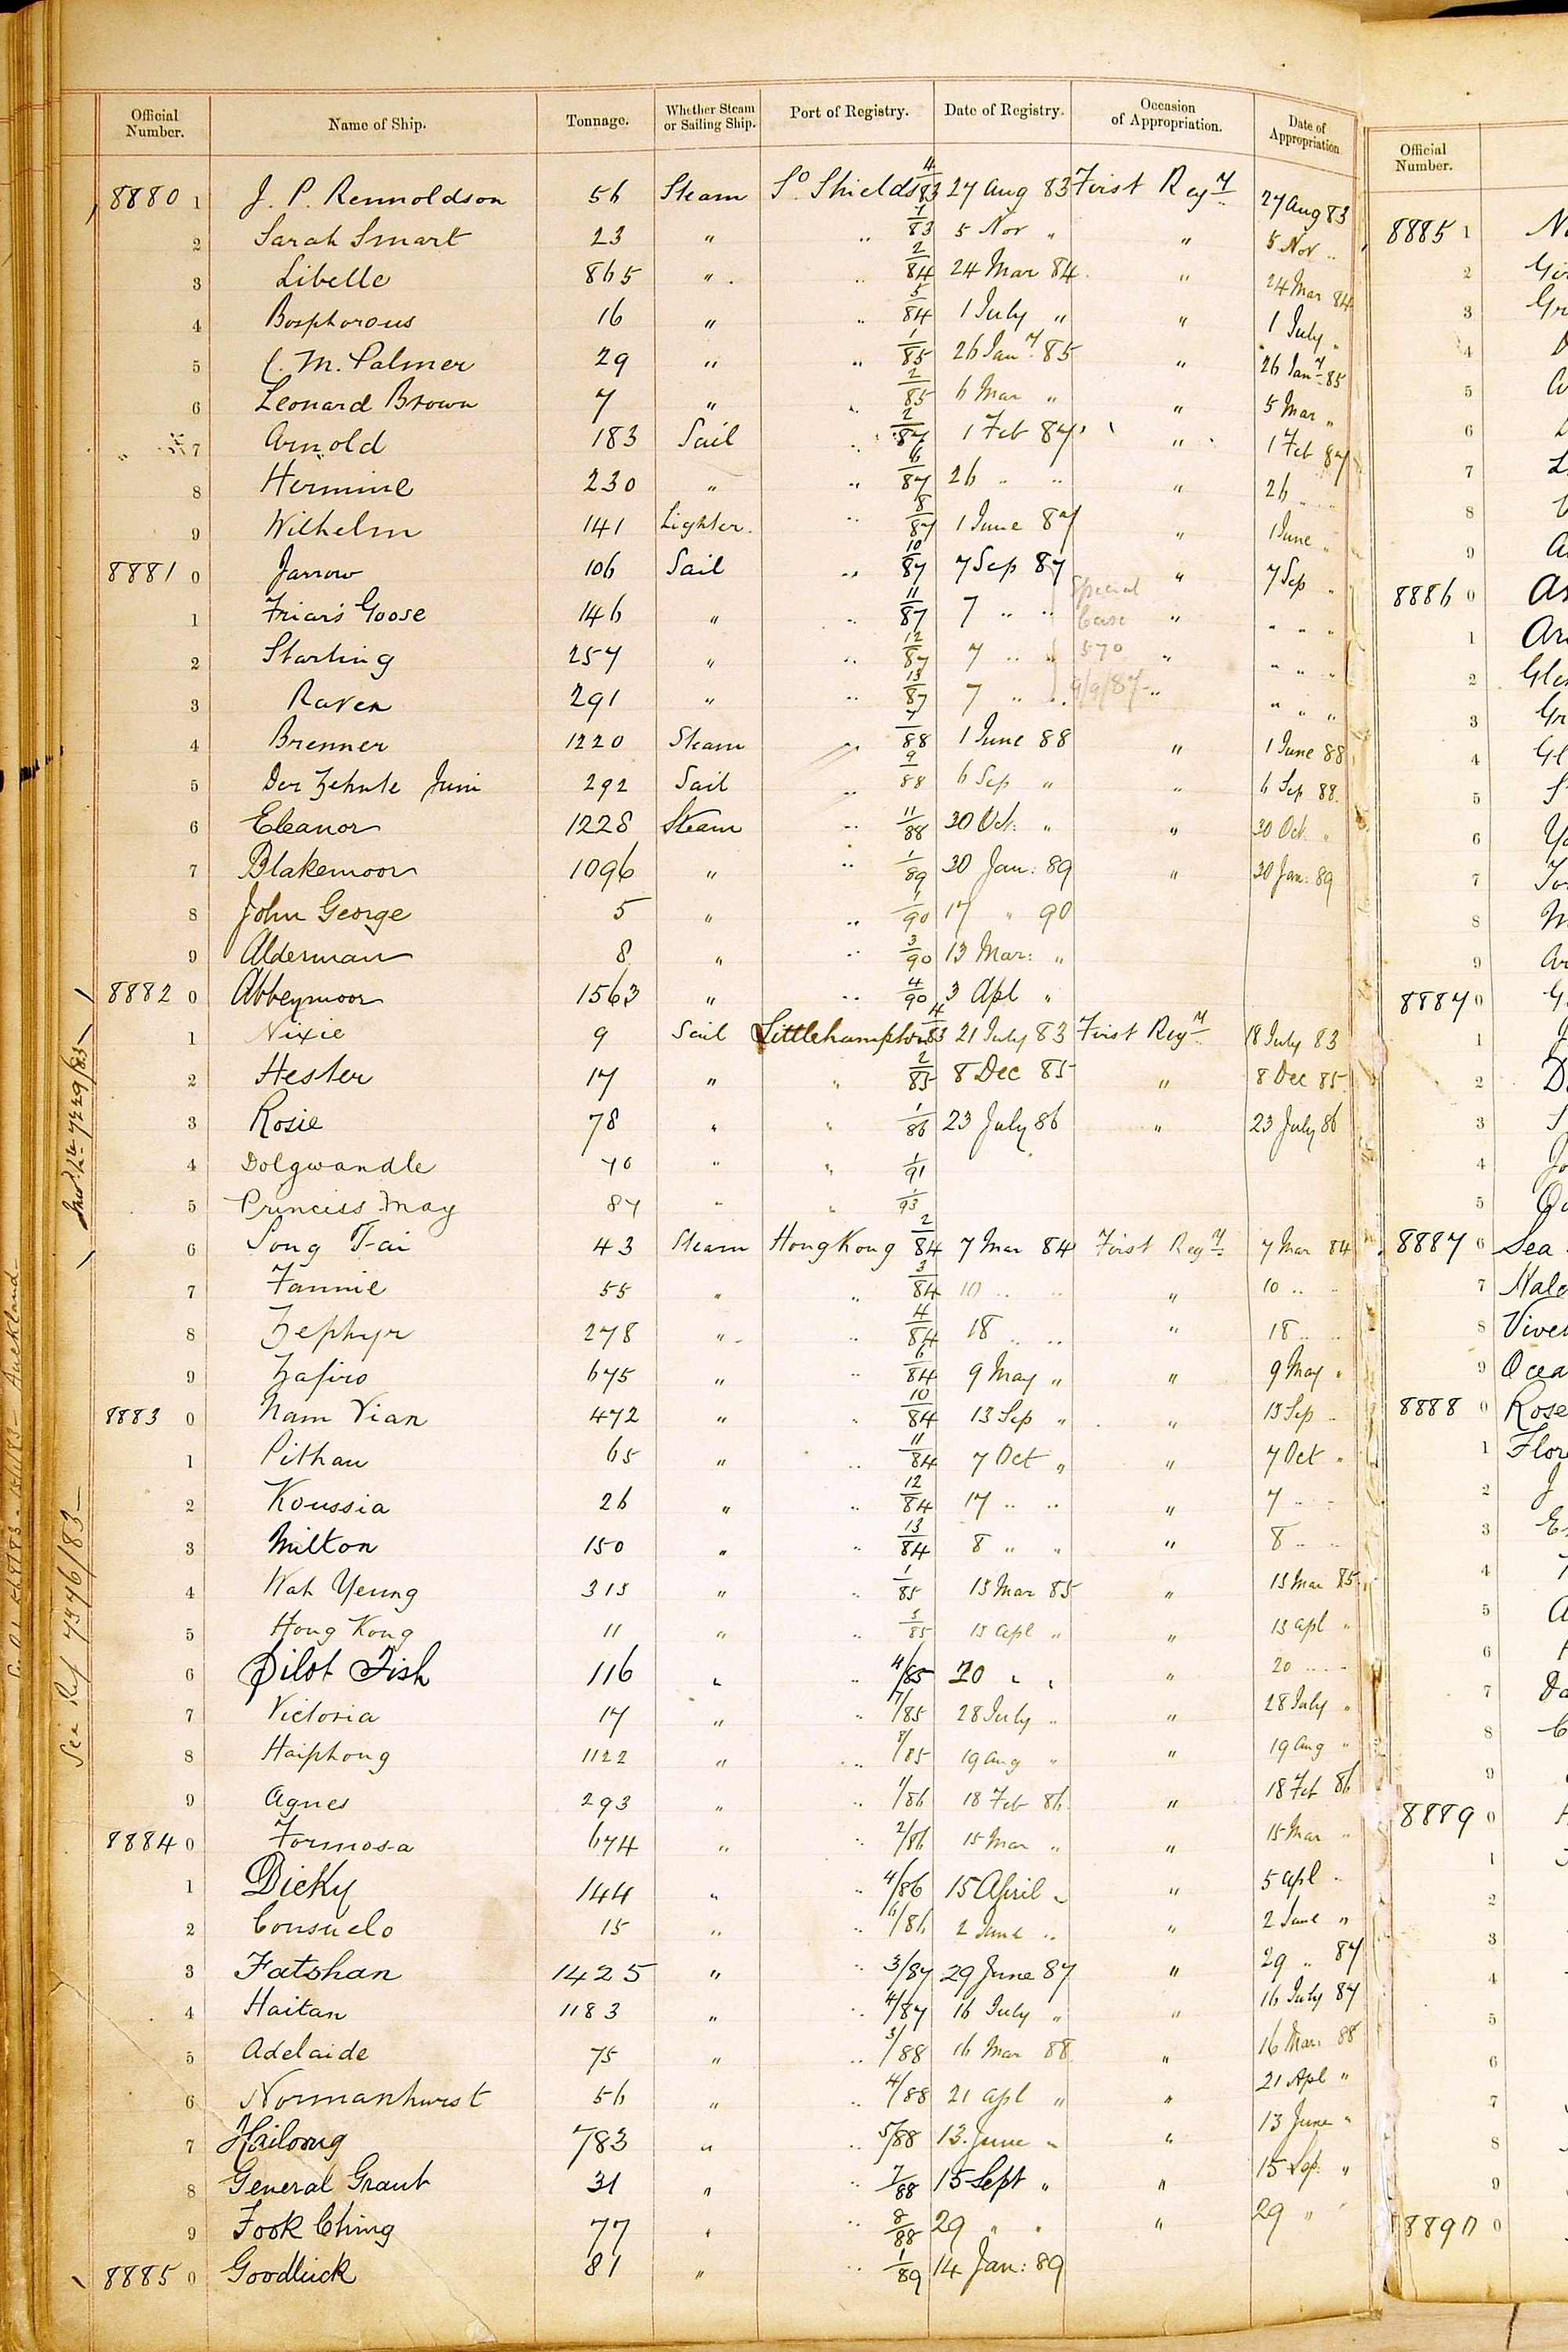 Official Number. Name of Ship. Tonnage. Whether Steam or Sailing Ship. Port of Registry. Date of Registry. Occasion of Appropriation. Date of Appropriation
8880 1 J. P. Rennoldson 56 Steam So. Shields 4/83 27 Aug 83 First Regy 27 Aug 83
2 Sarah Smart 23 " " 1/83 5 Nov " " 5 Nov "
3 Libelle 865 " " 2/84 24 Mar 84 " 24 Mar 84
4 Bosphorous 16 " " 5/84 1 July " " 1 July "
5 C. M. Palmer 29 " " 1/85 26 Jany 85 " 26 Jany 85
6 Leonard Brown 7 " " 2/85 6 Mar " " 5 Mar "
7 Arnold 183 Sail " 2/87 1 Feb 87 " 1 Feb 87
8 Hermine 230 " " 6/87 26 " " " 26 " "
9 Wilhelm 141 Lighter " 8/87 1 June 87 " 1 June "
8881 0 Jarrow 106 Sail " 10/87 7 Sep 87 " 7 Sep "
1 Friars Goose 146 " " 11/87 7 " " Special Case " " " "
2 Starling 257 " " 12/87 7 " " 570 " " " "
3 Raven 291 " " 13/87 7 " " 9/9/87 " " " "
4 Brenner 1220 Steam " 7/88 1 June 88 " 1 June 88
5 Der Zehnte Juni 292 Sail " 9/88 6 Sep " " 6 Sep 88
6 Eleanor 1228 Steam " 11/88 30 Oct: " " 30 Oct "
7 Blakemoor 1096 " " 1/89 30 Jan: 89 " 30 Jan: 89
8 John George 5 " " 1/90 17 " 90
9 Alderman 8 " " 3/90 13 Mar: "
8882 0 Abbeymoor 1563 " " 4/90 3 Apl "
1 Nixie 9 Sail Littlehampton 4/83 21 July 83 First Regy 18 July 83
2 Hester 17 " " 2/85 8 Dec 85 " 8 Dec 85
3 Rosie 78 " " 1/86 23 July 86 " 23 July 86
4 Dolgwandle 70 " " 1/91
5 Princess May 87 " " 1/93
6 Song Tai 43 Steam Hong Kong 2/84 7 Mar 84 First Regy 7 Mar 84
7 Fannie 55 " " 3/84 10 " " " 10 " "
8 Zephyr 278 " " 4/84 18 " " " 18 " "
9 Zafiro 675 " " 6/84 9 May " " 9 May "
8883 0 Nam Vian 472 " " 10/84 13 Sep " " 13 Sep "
1 Pithau 65 " " 11/84 7 Oct " " 7 Oct "
2 Koussia 26 " " 12/84 17 " " " 7 " "
3 Milton 150 " " 13/84 8 " " " 8 " "
4 Wah Yeung 313 " " 1/85 13 Mar 85 " 13 Mar 85
5 Hong Kong 11 " " 3/85 13 Apl " " 13 Apl "
6 Pilot Fish 116 " " 4/85 20 " " " 20 " "
7 Victoria 17 " " 7/85 28 July " " 28 July "
8 Haiphong 1122 " " 8/85 19 Aug " " 19 Aug "
9 Agnes 293 " " 1/86 18 Feb 86 " 18 Feb 86
8884 0 Formosa 674 " " 2/86 15 Mar " " 15 Mar "
1 Dicky 144 " " 4/86 15 April " " 5 Apl "
2 Consuelo 15 " " 6/86 2 June " " 2 June "
3 Fatshan 1425 " " 3/87 29 June 87 " 29 " 87
4 Haitan 1183 " " 4/87 16 July " " 16 July 87
5 Adelaide 75 " " 3/88 16 Mar 88 " 16 Mar: 88
6 Normanhurst 56 " " 4/88 21 Apl " " 21 Apl "
7 Hailoong 783 " " 5/88 13 June " " 13 June "
8 General Grant 31 " " 7/88 15 Sept " " 15 Sep: "
9 Fook Ching 77 " " 8/88 29 " " " 29 " "
8885 0 Goodluck 81 " " 1/89 14 Jan: 89
7229/83
See Ref 7346/83
Auckland
Official Number.
8885 1
2
3 Gr
4
5
6
7
8
9
8886 0
1
2
3 Gr
4 Gl
5
6
7
8
9
8887 0
1
2
3
4
5
8887 6 Sea
7
8
9 Ocea
8888 0 Rose
1 Flor
2
3
4
5
6
7
8
9
8889 0
1
2
3
4
5
6
7
8
9
8890 0